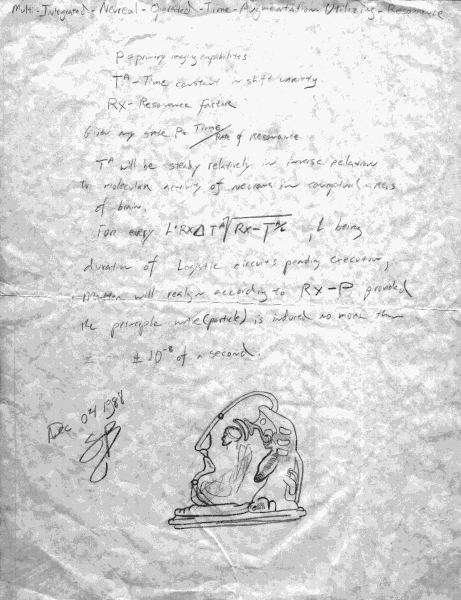 Multi-Integrated-Neureal-Operated-Time-Augmentation Utilizing-Resonance
P = primary imaging capabilities
T^A - Time constant in shift variety
RX - Resonance factor
Given any sense P = Time/Rate of Resonance
T^A will be steady relatively in inverse relation
to molecular activity of neurons in conceptual areas
of brain.
For every L·RX Δ T^A √RX-T , L being
duration of Logistic circuits pending execution,
Matter will realign according to RX-P provided
the principle note (particle) is induced no more than
± 10^-8 of a second.
Dec 04 1988